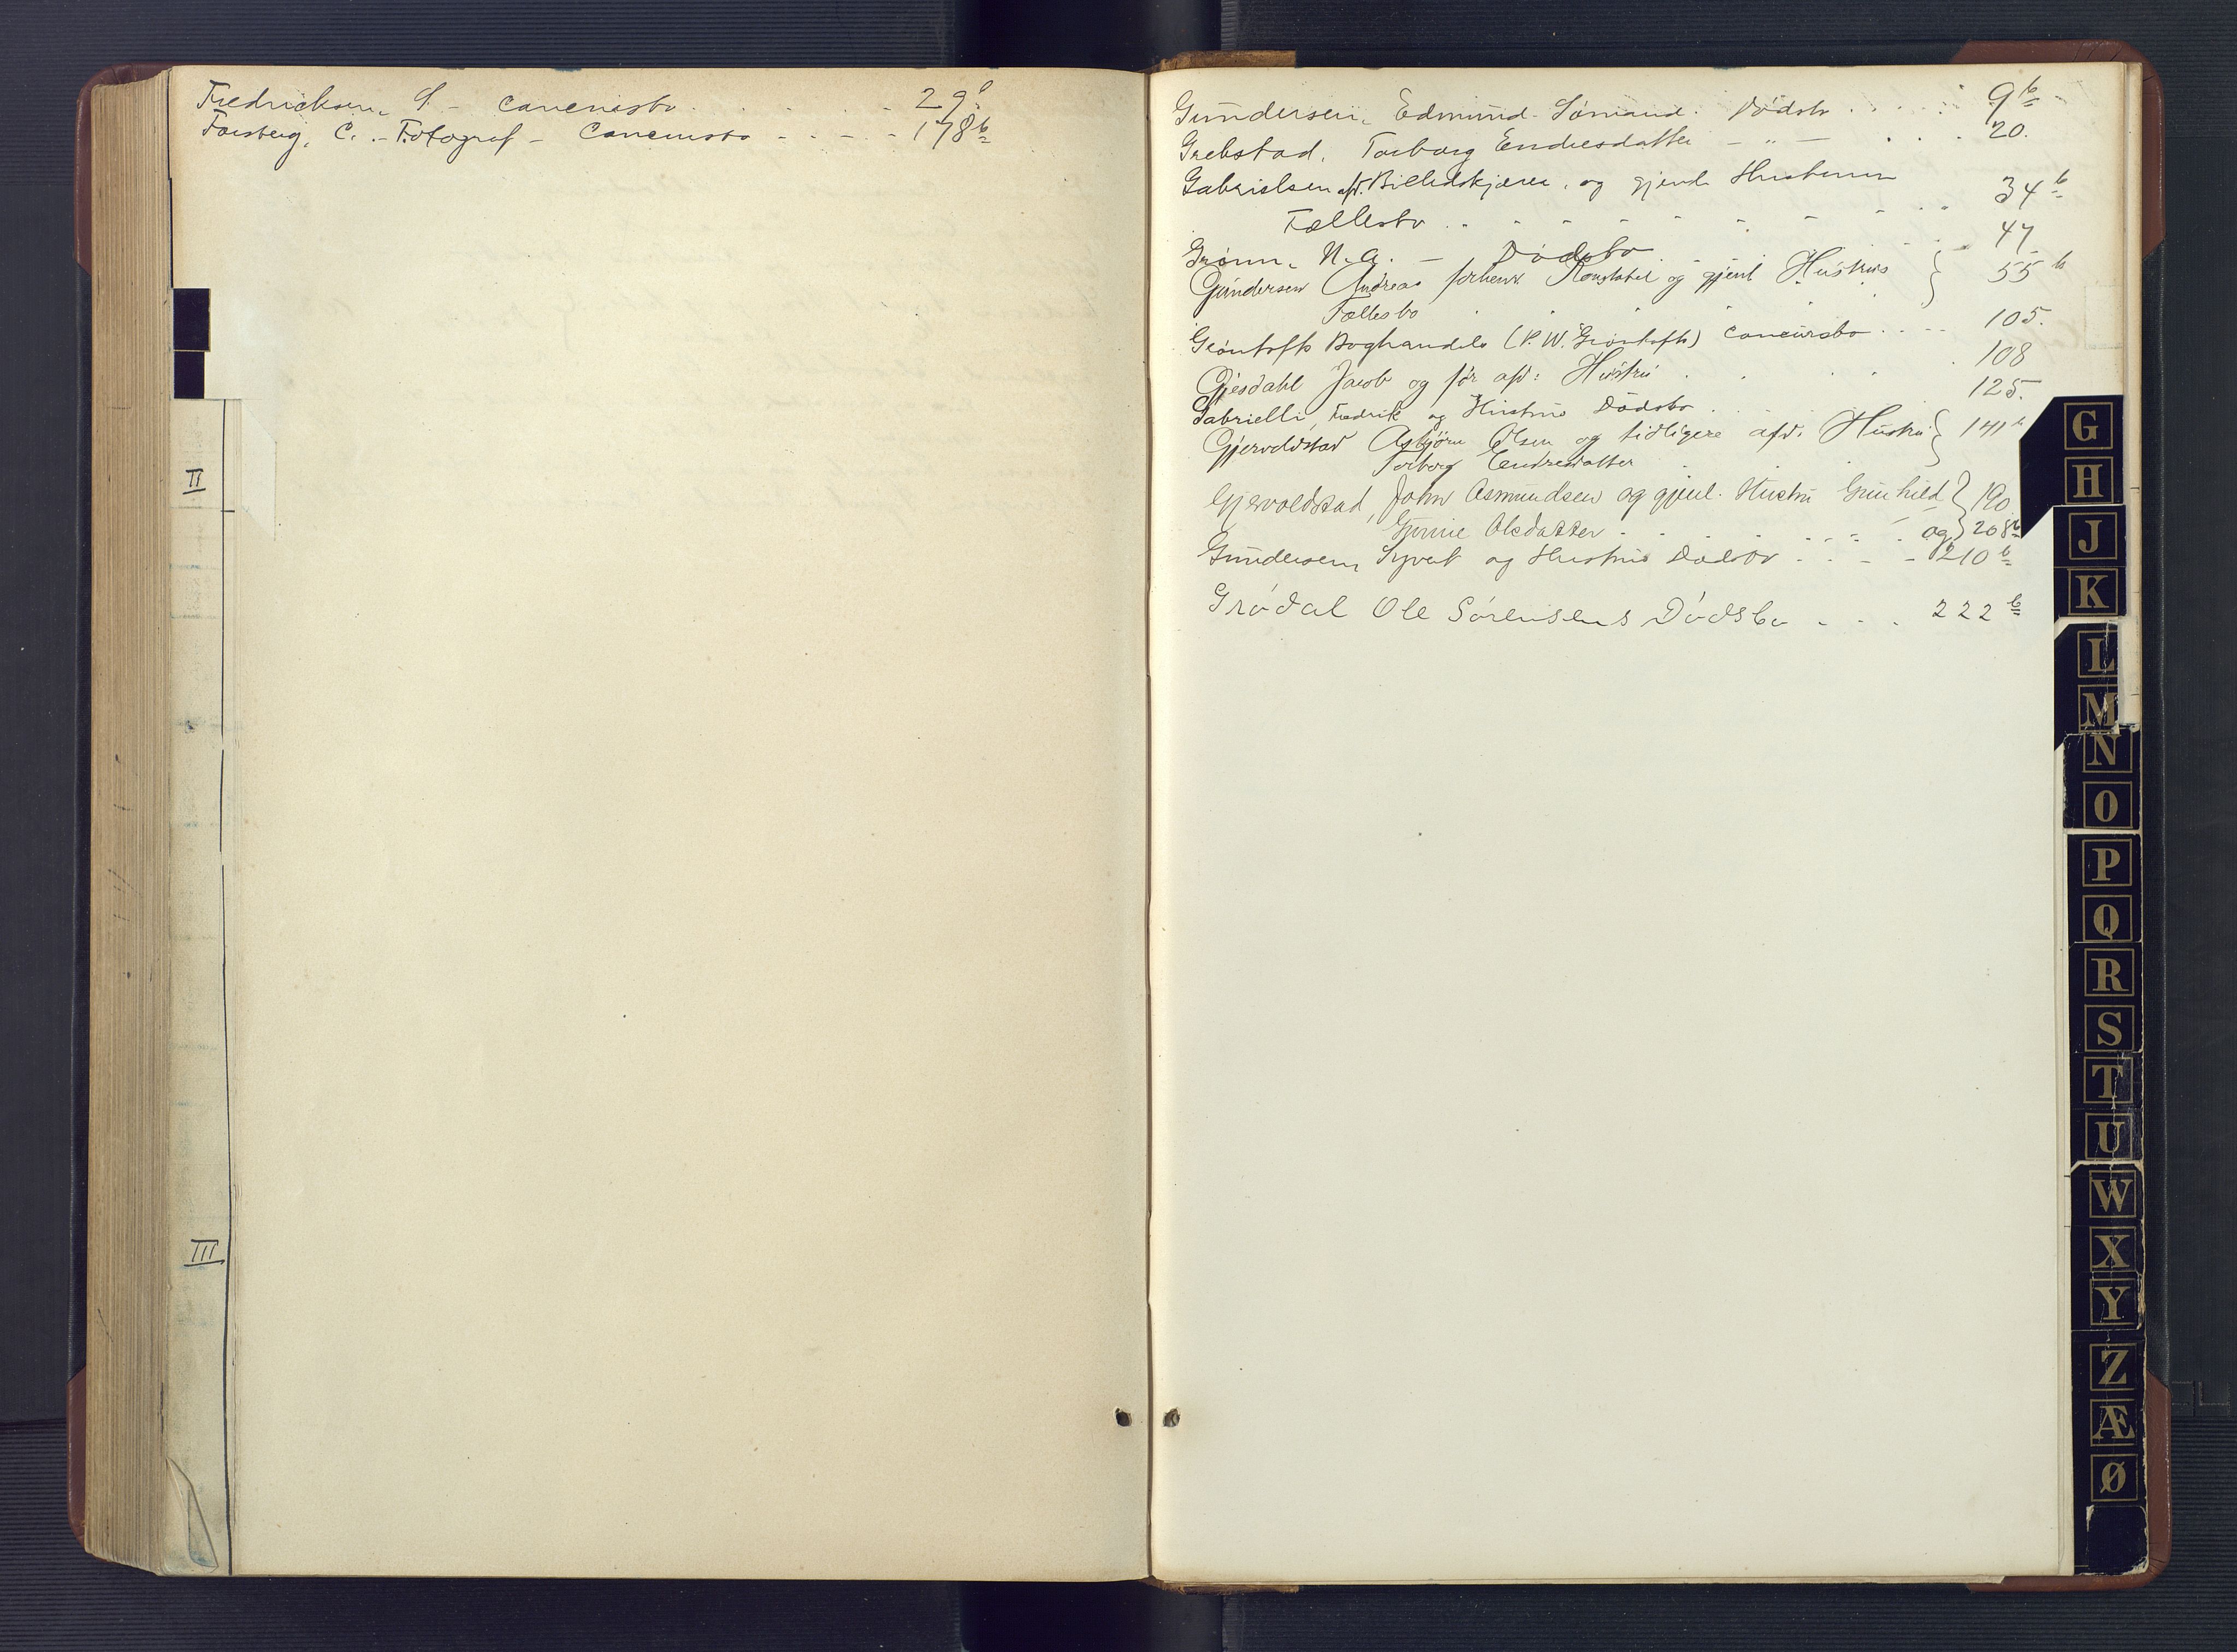 Fredricksen, S. - Concursbo . . . . . . 29b
Forsberg, C. - Fotograf - Concursbo - - - - - 178b
II
III
Gundersen, Edmund - Sømand. Dødsbo . . . . 9b
Grebstad, Torborg Endresdatter - " - . . . 20.
Gabrielsen afd. Billedskjærer, og gjenl. Hustrues
Fællesbo . . - - - - - - . . 34b
Grønn, N. A. - Dødsbo - - . 47
Gundersen Andreas forhenv. Konstabel og gjenl Hustrus } 55b
Fællesbo
Grøntofts Boghandels (P. W. Grøntofts) Concursbo . . . . 105.
Gjesdahl Jacob og før afd: Hustru . . . . 108
Gabrielli, Fredrik og Hustrus Dødsbo . . . . 125.
Gjervoldstad Asbjørn Olsen og tidligere afd. Hustru } 141b
Torborg Endresdatter
Gjervoldstad, John Asmundsen og gjenl. Hustru Gunhild } 190
Gurine Olsdatter . . . . . . . og } 208b
Gundersen, Syvert og Hustrus Dødsbo . . - - 210b
Grødal Ole Sørensens Dødsbo - - - . 222b
G
H
J
K
L
M
N
O
P
Q
R
S
T
U
W
X
Y
Z
Æ
Ø